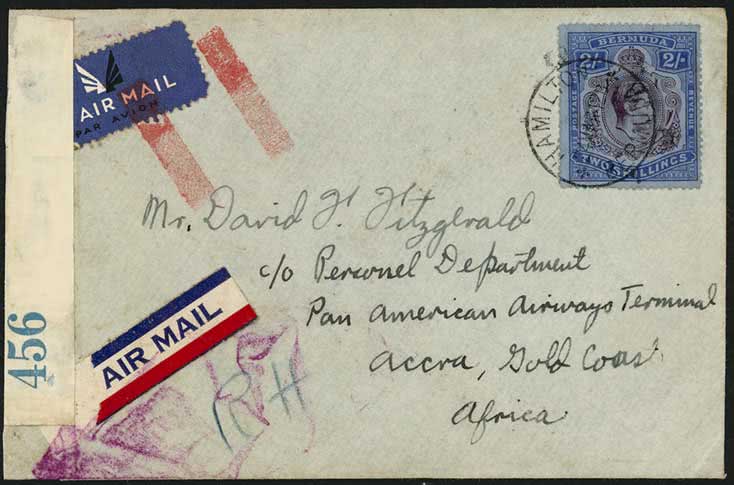 AIR MAIL
PAR AVION
BERMUDA
2/- 2/-
POSTAGE REVENUE
TWO SHILLINGS
HAMILTON
BERMUDA
Mr. David F. Fitzgerald
c/o Personel Department
Pan American Airways Terminal
Accra, Gold Coast
Africa
AIR MAIL
RH
456